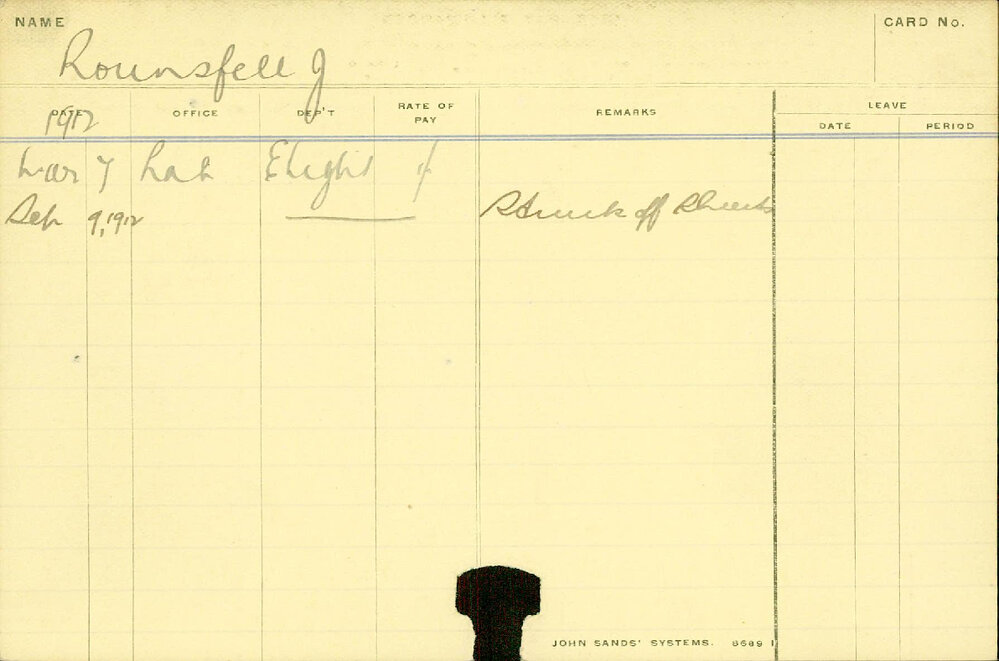 NAME
CARD No.
Rounsfell J
DATE OFFICE DEP'T RATE OF PAY REMARKS LEAVE
DATE PERIOD
1912
Mar 7 Lab Elight
Sep 9, 1912 Struck off Sheets
JOHN SANDS' SYSTEMS. 8689